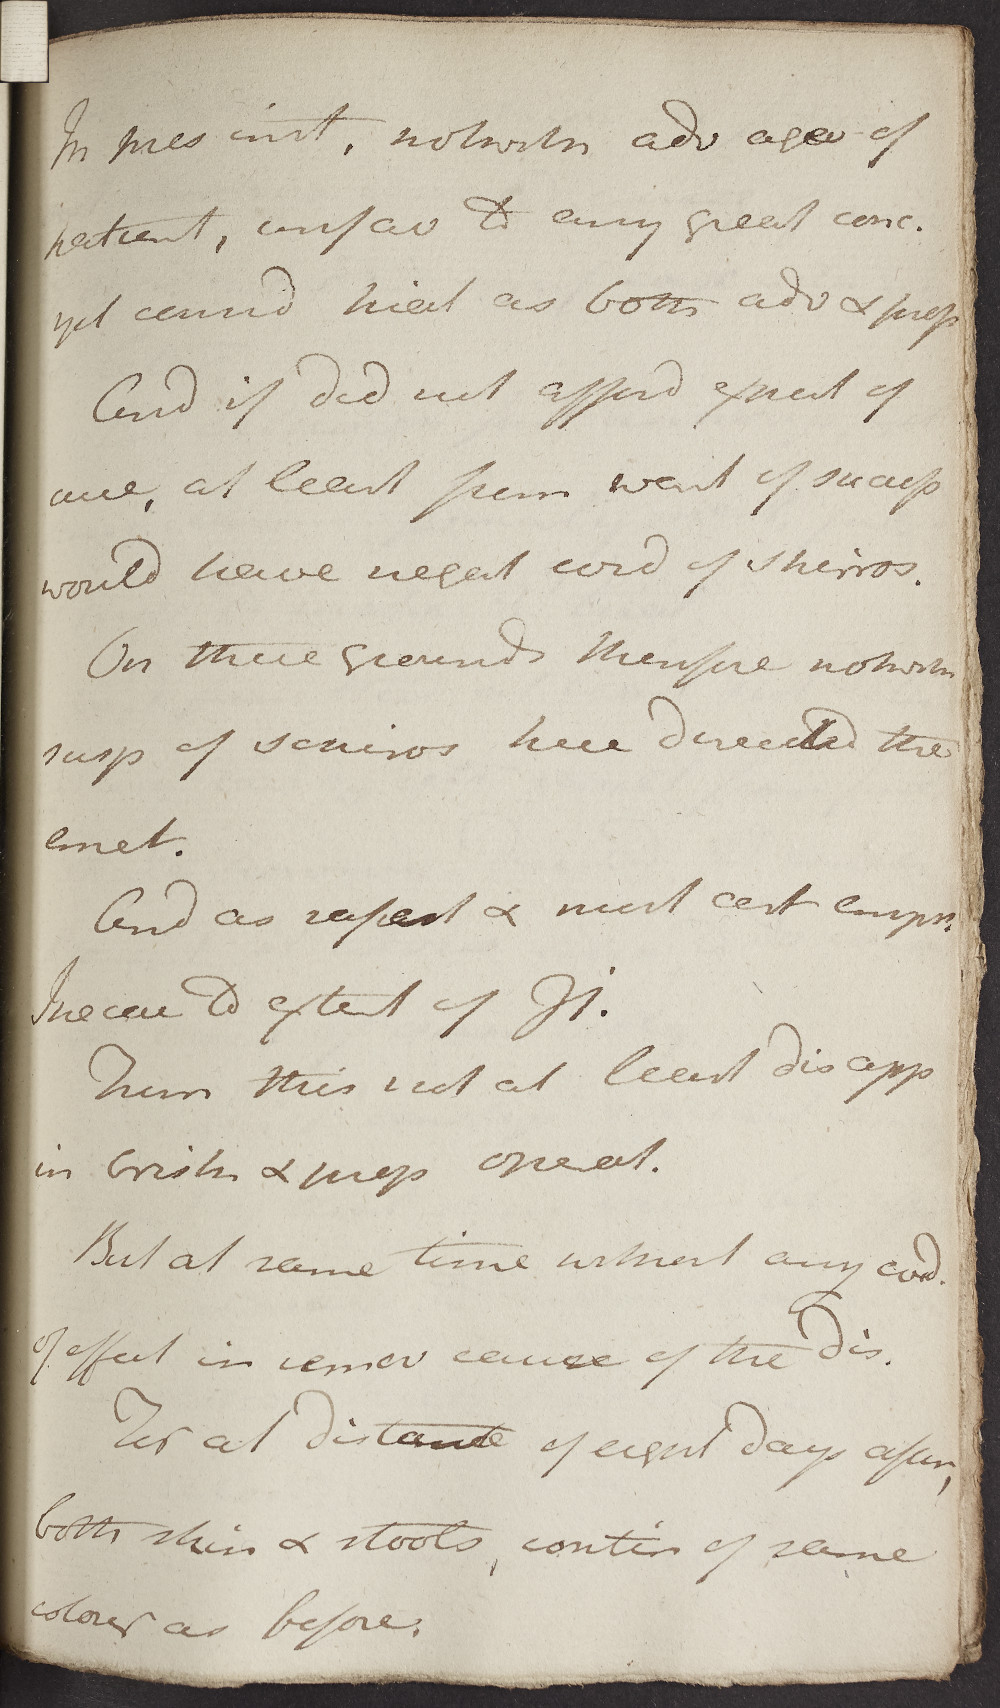 In pres inst, notwth adv age of
patient, unfav to any great conc.
yet consid trial as both adv & prop
And if did not afford expect of
cure, at least from want of success
would have negat evid of skirros.
On these grounds therefore notwth
susp of scirros have directed the
emet.
And as safest & most cert employ
Ipecac to extent of ʒi.
From this not at least disapp
in briskn & prop operat.
But at same time without any evid.
of effect in remov cause of the dis.
For at distance of eight days after,
both skin & stools, contin of same
colour as before.